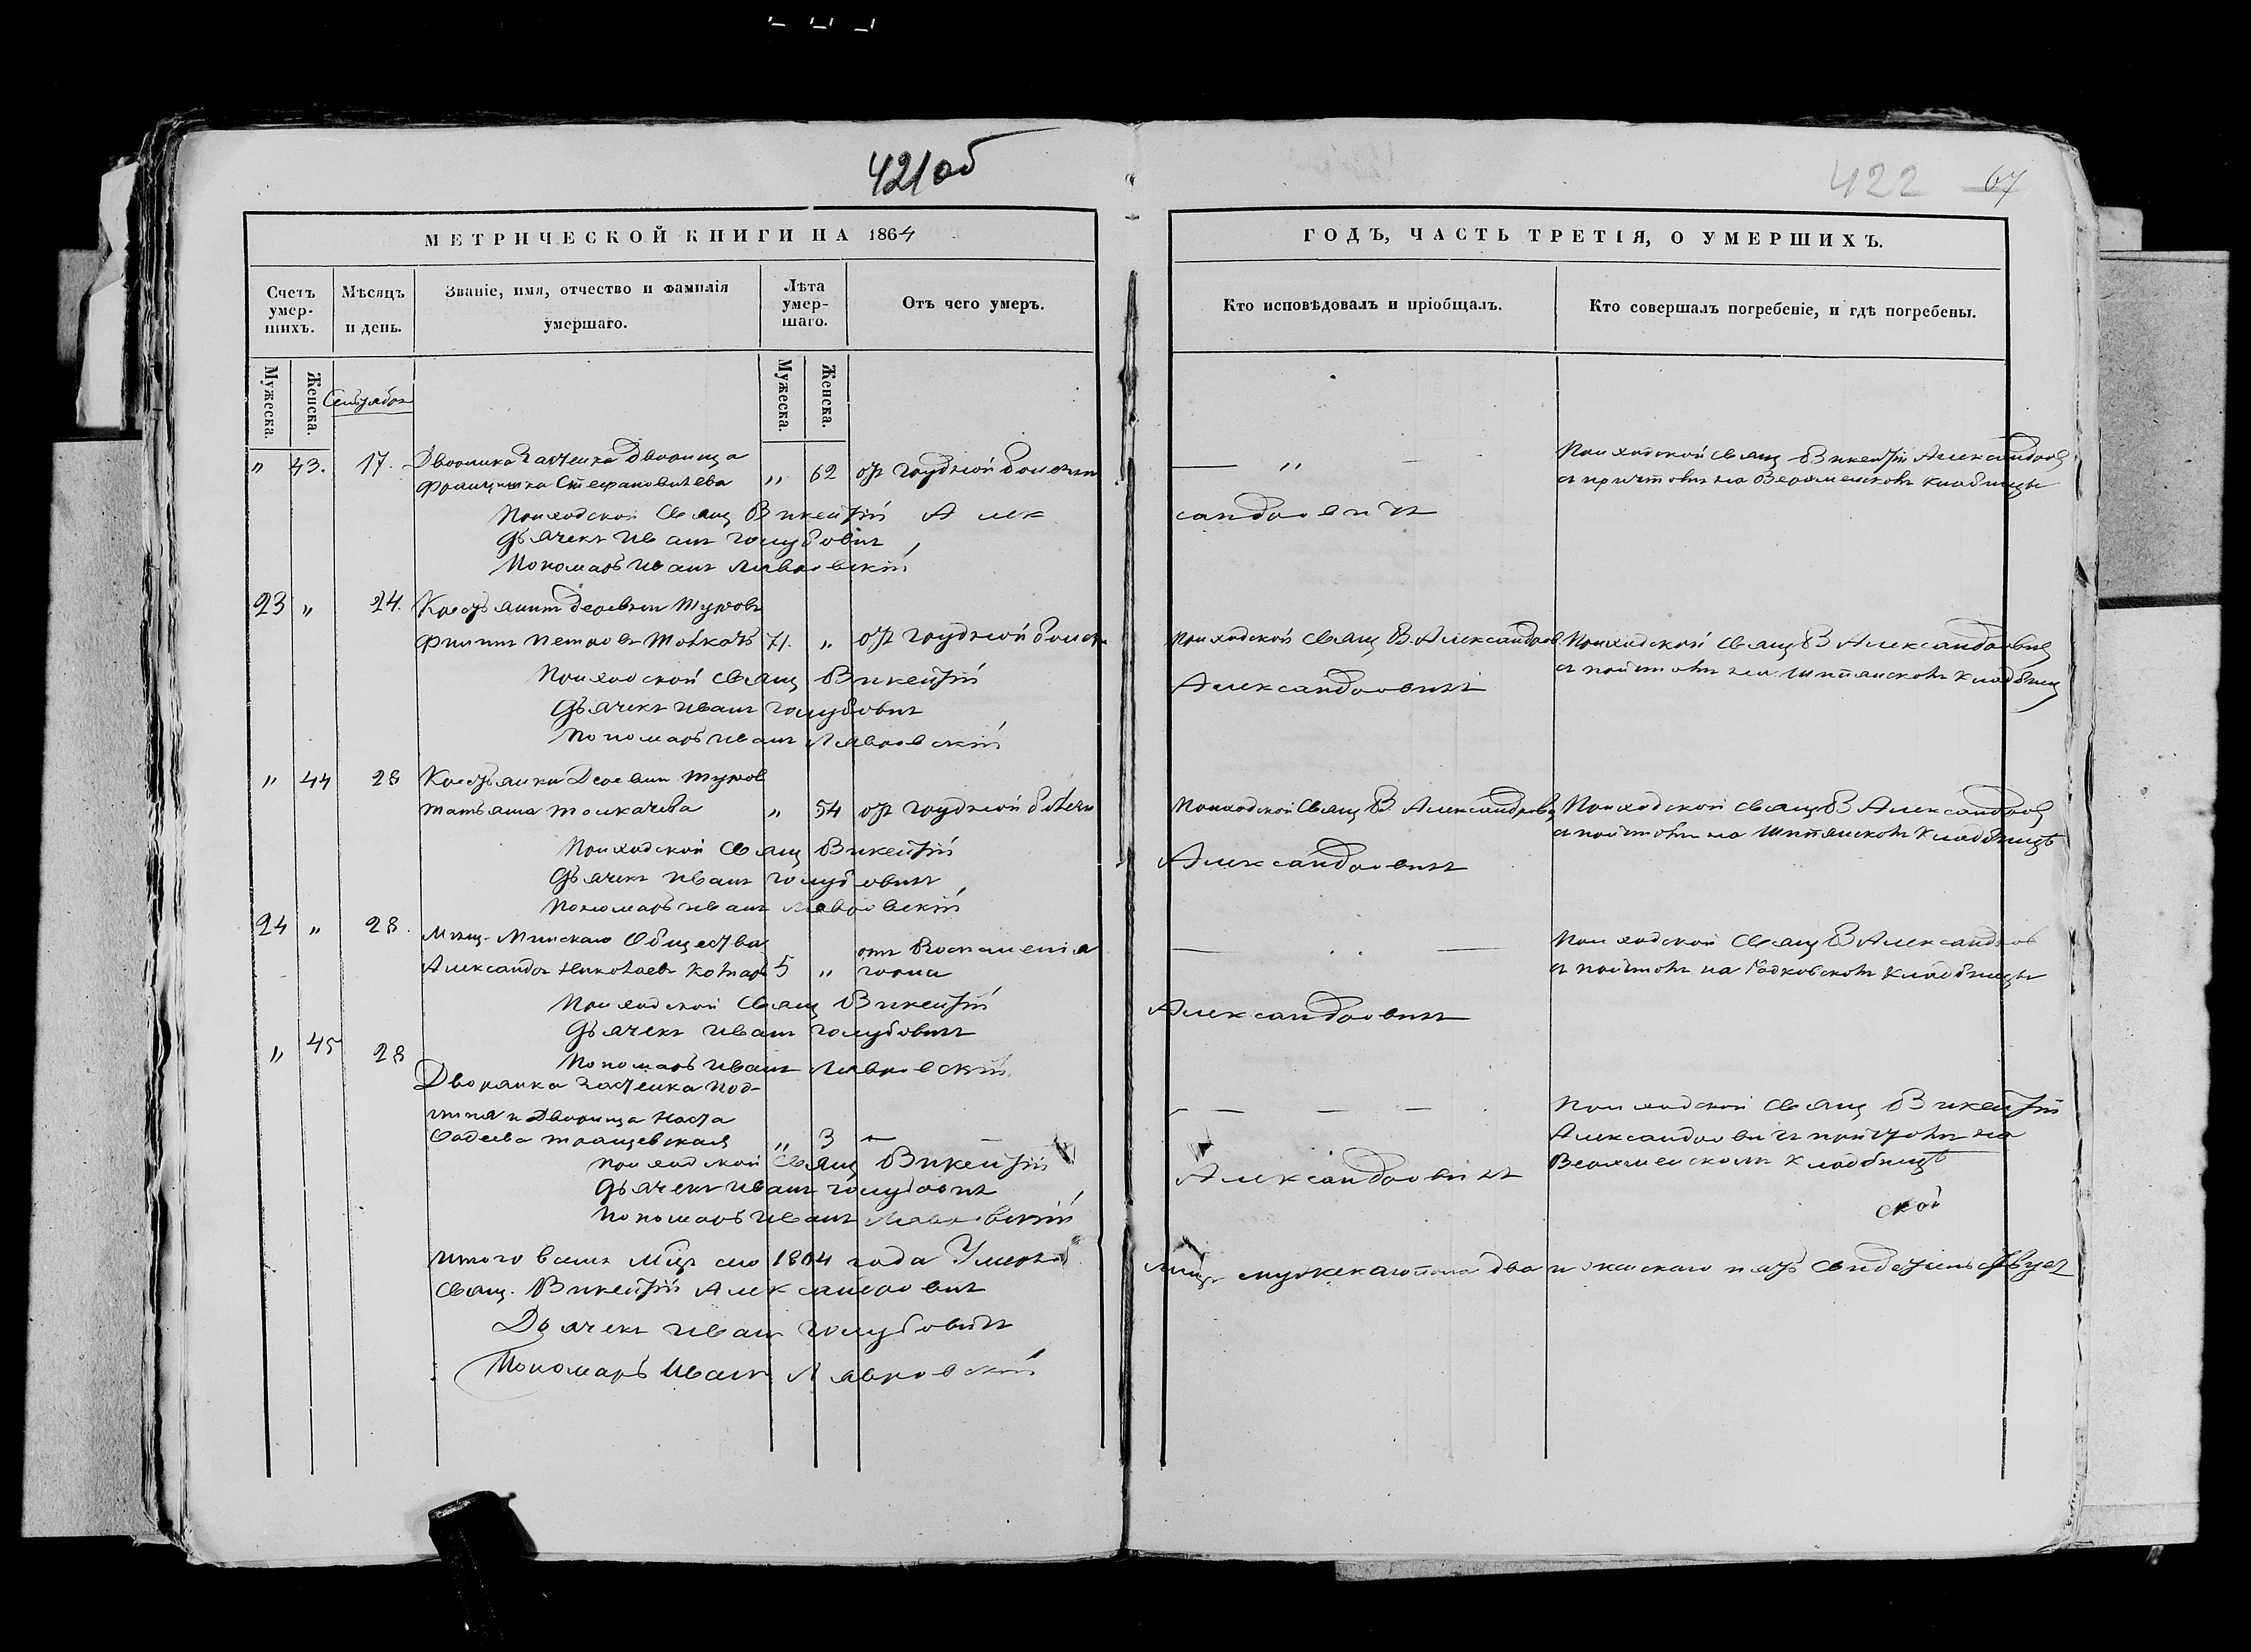 421об
422 67
МЕТРИЧЕСКОЙ КНИГИ НА 1864
ГОДЪ, ЧАСТЬ ТРЕТІЯ, О УМЕРШИХЪ.
Счетъ умер-
шихъ.
Мѣсяцъ
и день.
Званіе, имя, отчество и фамилія
умершаго.
Лѣта
умер-
шаго.
Отъ чего умеръ.
Кто исповѣдовалъ и пріобщалъ.
Кто совершалъ погребеніе, и гдѣ погребены.
Мужеска.
Женска.
Мужеска.
Женска.
Сентября
" 43. 17. Дворянка Застенка Дворища " 62 отъ грудной болезни
Францишка Стефановичева
— " — Приходской Свящ Викентій Александров
съ причтомъ на кладбищы
Приходской Свящ Викентій Алек сандровичъ
Дьячекъ Иванъ Голубовичъ
Пономарь Иванъ Лавровскій
23 " 24. Крестьянинъ деревни
Филипъ Петровъ Толкачъ 71. " отъ грудной болезн
Приходской Свящ В. Александров
Приходской Свящ В Александрович
съ причтомъ на кладбищ
Приходской Свящ Викентій Александровичъ
Дьячекъ Иванъ Голубовичъ
Пономарь Иванъ Лавровскій
" 44 28 Крестьянка Деревни
Татьяна Толкачева " 54 отъ грудной болезн
Приходской Свящ В Александров
Приходской Свящ В Александров
съ причтомъ на кладбищѣ
Приходской Свящ Викентій Александровичъ
Дьячекъ Иванъ Голубовичъ
Пономарь Иванъ Лавровскій
24 " 28. Мѣщ. Минскаго Общества
Александръ Николаевъ 5 " отъ Воспаленія
горла
Приходской Свящ В Александров
съ причтомъ на кладбищы
Приходской Свящ Викентій Александровичъ
Дьячекъ Иванъ Голубовичъ
Пономарь Иванъ Лавровскій
" 45 28
Дворянка Застенка
Дворища Наста
" 3 —
Приходской Свящ Викентій
Александровичъ причтомъ на
кладбищѣ
Приходской Свящ Викентій Александровичъ
Дьячекъ Иванъ Голубовичъ
Пономарь Иванъ Лавровскій
ской
Итого въ семъ Мцѣ сего 1864 года Умерло мужекаго пола два и женскаго пять Свидетельствует
Свящ. Викентій Александровичъ
Дьячекъ Иванъ Голубовичъ
Пономарь Иванъ Лавровскій